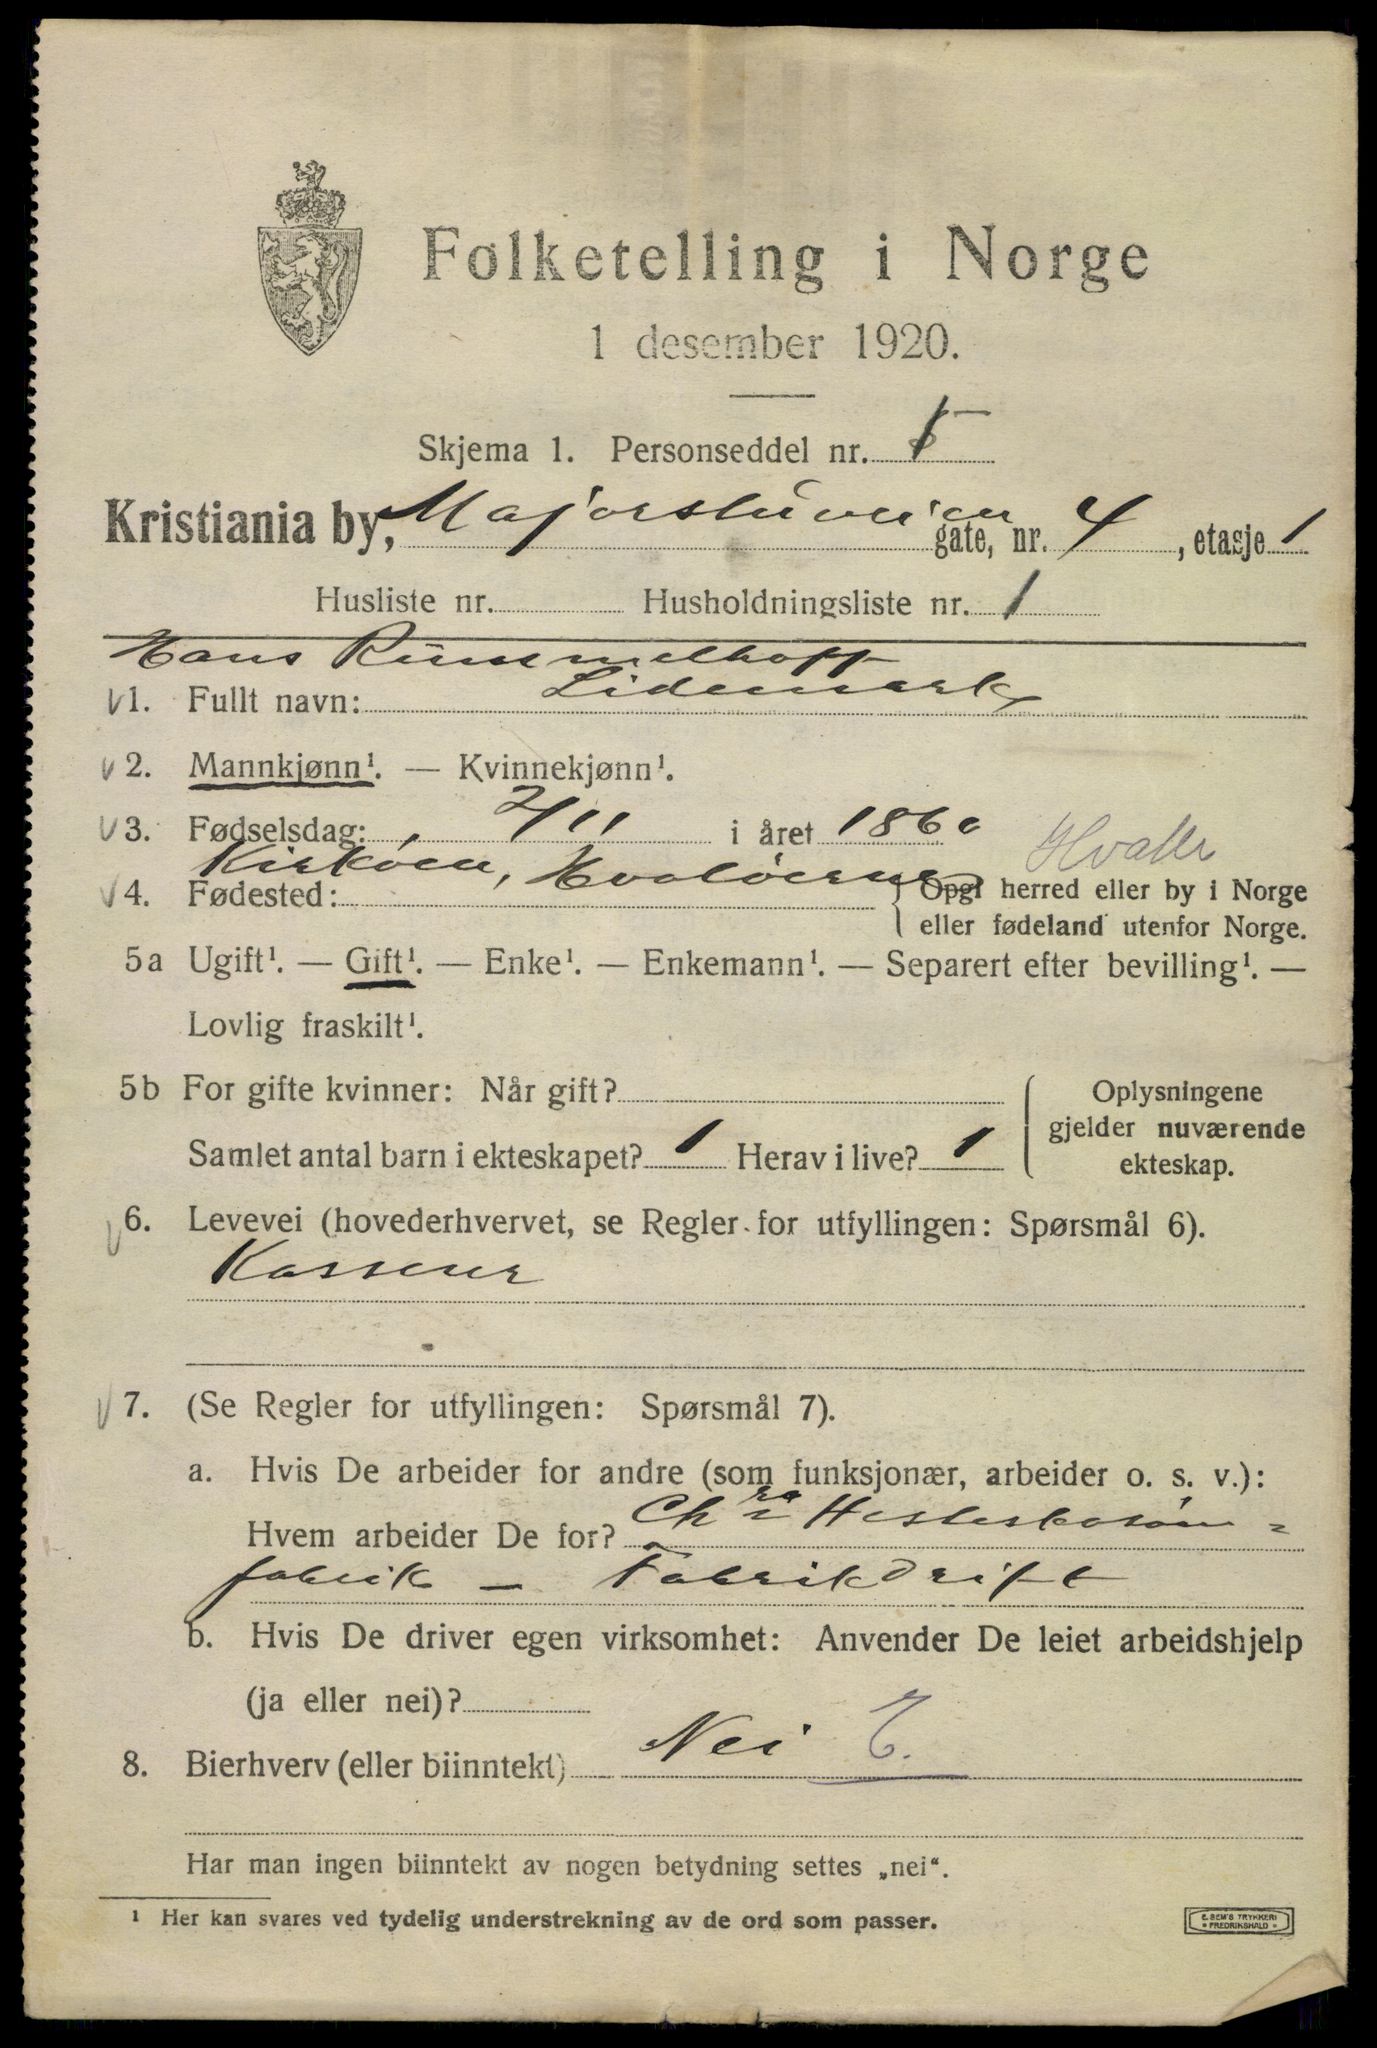 Folketelling i Norge
1 desember 1920.
Skjema 1. Personseddel nr. 1
Kristiania by, Majorstuveien gate, nr. 4, etasje 1
Husliste nr. Husholdningsliste nr. 1
Hans Rummelhoff
1. Fullt navn: Lidemark
2. Mannkjønn¹. — Kvinnekjønn¹.
3. Fødselsdag: 7/11 i året 1860
Kirkøen, Hvaløerne Hvaler
4. Fødested: Opgi herred eller by i Norge
eller fødeland utenfor Norge.
5a Ugift¹. — Gift¹. — Enke¹. — Enkemann¹. — Separert efter bevilling¹. —
Lovlig fraskilt¹.
5b For gifte kvinner: Når gift?
Samlet antal barn i ekteskapet? 1 Herav i live? 1
Oplysningene
gjelder nuværende
ekteskap.
6. Levevei (hovederhvervet, se Regler for utfyllingen: Spørsmål 6).
Kasserer
7. (Se Regler for utfyllingen: Spørsmål 7).
a. Hvis De arbeider for andre (som funksjonær, arbeider o. s. v.):
Hvem arbeider De for? Chra Hesteskosøm=
fabrik – Fabrikdrift
b. Hvis De driver egen virksomhet: Anvender De leiet arbeidshjelp
(ja eller nei)?
8. Bierhverv (eller biinntekt) Nei
Har man ingen biinntekt av nogen betydning settes „nei“.
¹ Her kan svares ved tydelig understrekning av de ord som passer.
E. SEM'S TRYKKERI
FREDRIKSHALD